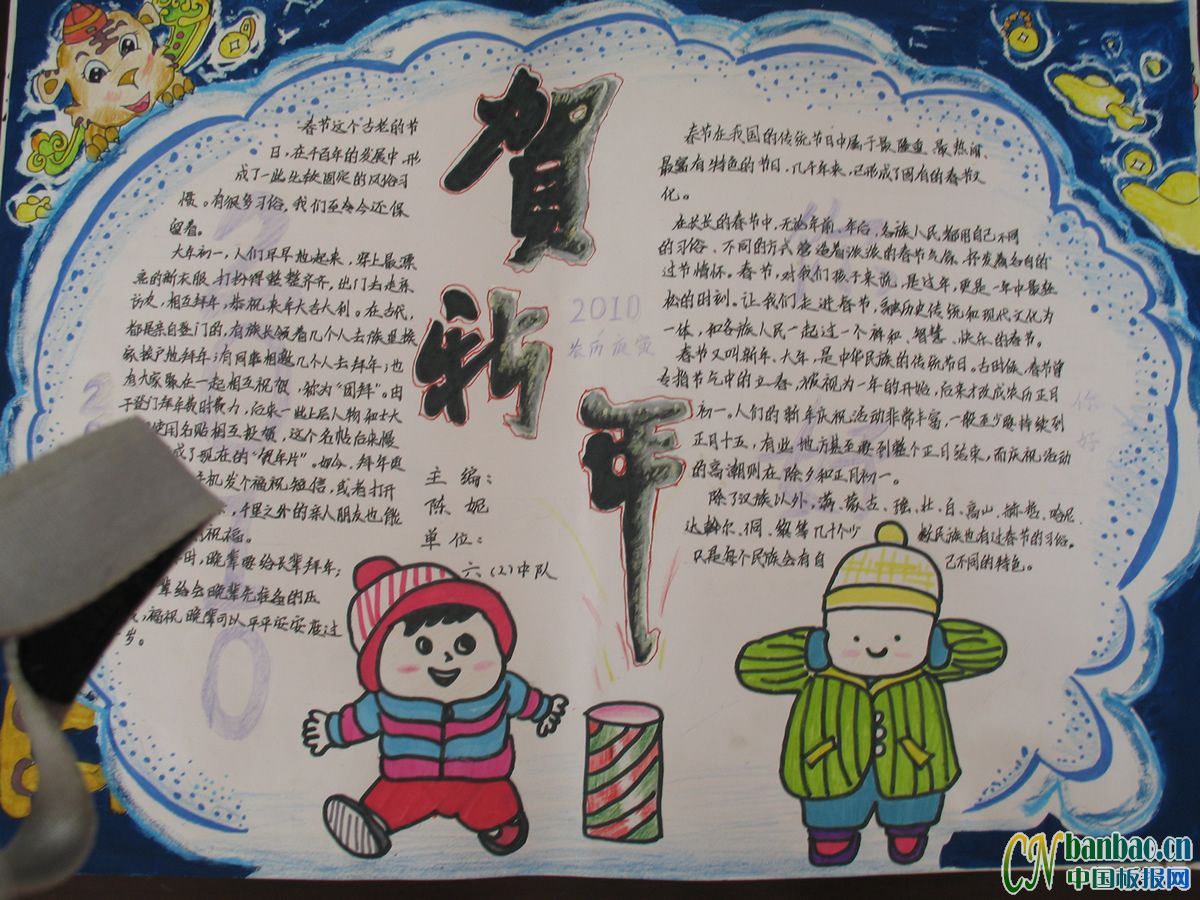 贺新年
春节这个古老的节
日,在千百年的发展中,形
成了一些比较固定的风俗习
惯。有很多习俗,我们至今还保
留着。
大年初一,人们早早地起来,穿上最漂
亮的新衣服,打扮得整整齐齐,出门去走亲
访友,相互拜年,恭祝来年大吉大利。在古代,
都是亲自登门的,有族长领着几个人去族里挨
家挨户地拜年;有同事相邀几个人去拜年;也
有大家聚在一起相互祝贺,称为“团拜”。由
于登门拜年费时费力,后来一些上层人物和士大
使用名贴相互投贺,这个名帖后来慢
成了现在的“贺年片”。如今,拜年更
手机发个福祝短信,或者打开
,千里之外的亲人朋友也能
祝福。
时,晚辈要给长辈拜年;
辈给会晚辈先准备的压
,福祝晚辈可以平平安安度过
岁。
2010
农历庚寅
主编:
陈妮
单位:
六(2)中队
春节在我国的传统节日中属于最隆重、最热闹、
最富有特色的节日,几千年来,已形成了固有的春节文
化。
在长长的春节中,无论年前、年后,各族人民都用自己不同
的习俗、不同的方式营造着浓浓的春节气氛,抒发着各自的
过节情怀。春节,对我们孩子来说,是过年,更是一年中最轻
松的时刻。让我们走进春节,融历史传统和现代文化为
一体,和各族人民一起过一个祥和、智慧、快乐的春节。
春节又叫新年、大年,是中华民族的传统节日。古时候,春节曾
专指节气中的立春,被视为一年的开始,后来才改成农历正月
初一。人们的新年庆祝活动非常丰富,一般至少要持续到
正月十五,有些地方甚至要到整个正月结束,而庆祝活动
的高潮则在除夕和正月初一。
除了汉族以外,满、蒙古、瑶、壮、白、高山、赫哲、哈尼、
达斡尔、侗、黎等几十个少数民族也有过春节的习俗。
只是每个民族会有自己不同的特色。
2010
你
好
CN banbao.cn
中国板报网